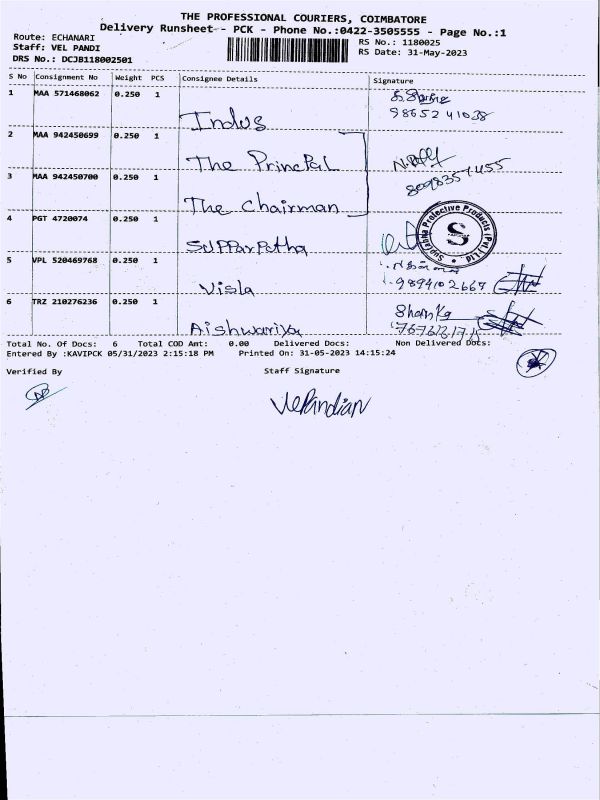 THE PROFESSIONAL COURIERS, COIMBATORE
Delivery Runsheet-- PCK - Phone No.:0422-3505555 - Page No.:1
Route: ECHANARI
RS No.: 1180025
Staff: VEL PANDI
RS Date: 31-May-2023
DRS No.: DCJB118002501
S No Consignment No Weight PCS Consignee Details Signature
1 MAA 571468062 0.250 1
Indus
98652 41038
2 MAA 942450699 0.250 1
The Principal
8098351455
3 MAA 942450700 0.250 1
The Chairman
4 PGT 4720074 0.250 1
Supparpatha
Protective Products (Pvt) Ltd
S
5 VPL 520469768 0.250 1
Visla
9894102667
6 TRZ 210276236 0.250 1
Aishwariya
Total No. Of Docs: 6 Total COD Amt: 0.00 Delivered Docs: Non Delivered Docs:
Entered By :KAVIPCK 05/31/2023 2:15:18 PM Printed On: 31-05-2023 14:15:24
Verified By Staff Signature
VelPandian